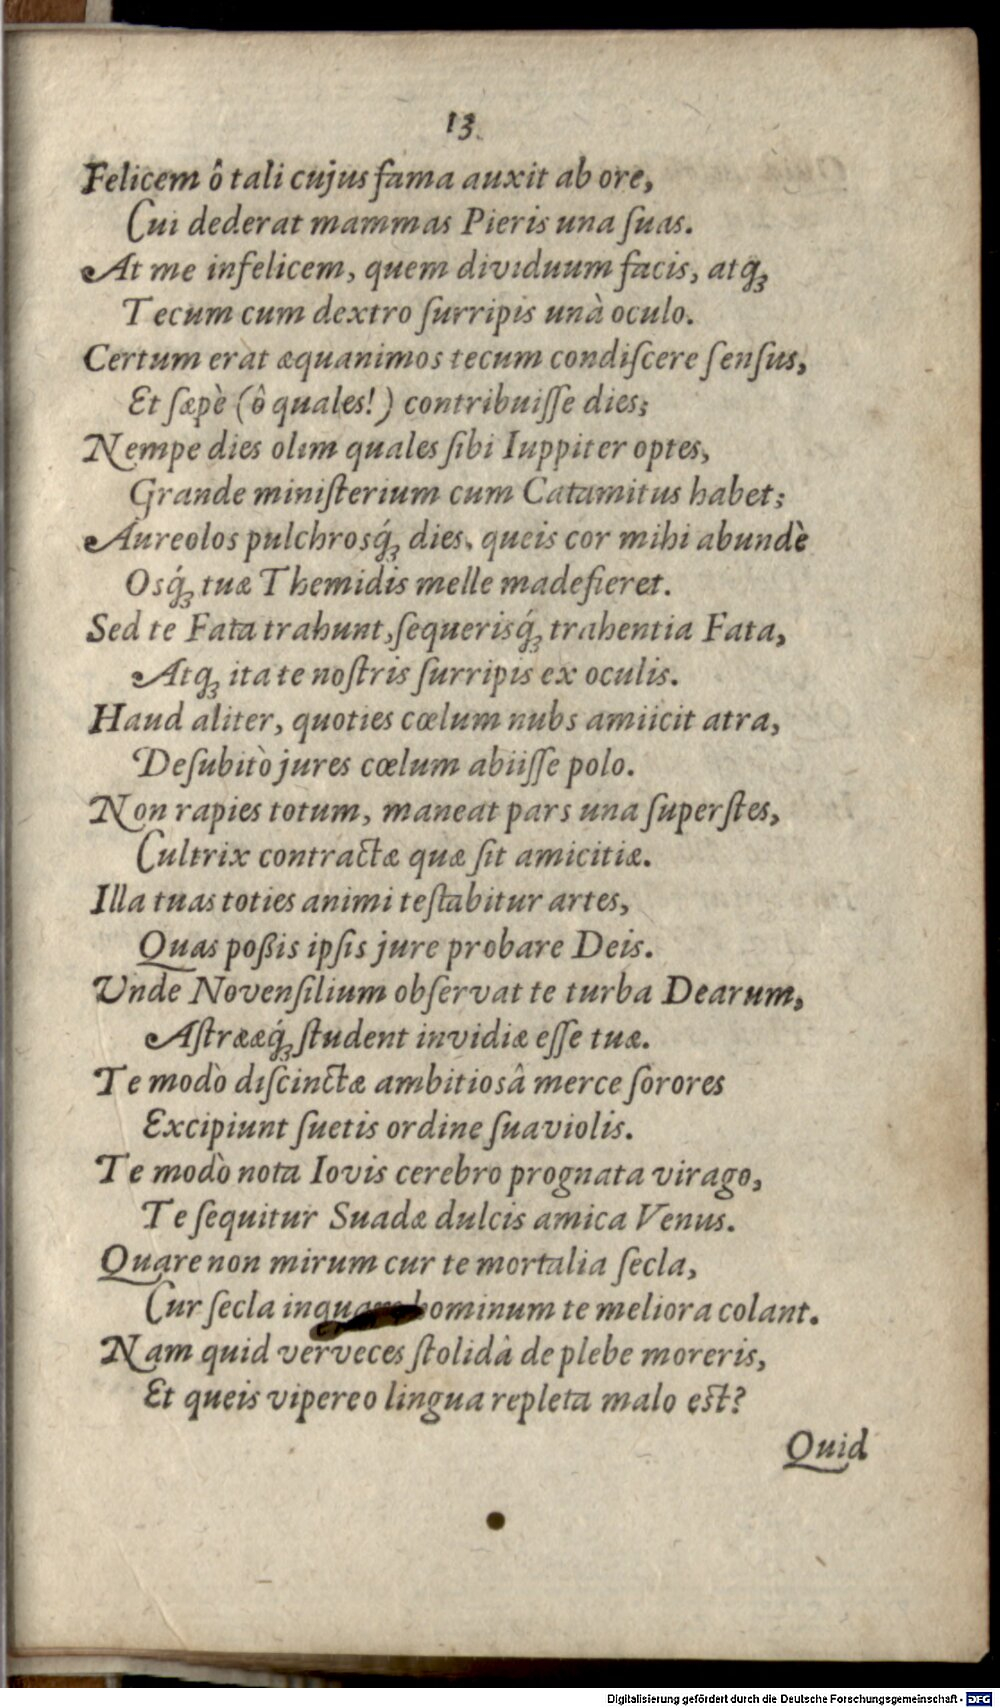 13.
Felicem ô tali cujus fama auxit ab ore,
Cui dederat mammas Pieris una ſuas.
At me infelicem, quem dividuum facis, atq́ꝫ
Tecum cum dextro ſurripis unà oculo.
Certum erat æquanimos tecum condiſcere ſenſus,
Et ſæpè (ô quales!) contribuiſſe dies;
Nempe dies olim quales ſibi Iuppiter optes,
Grande miniſterium cum Catamitus habet;
Aureolos pulchrosq́ꝫ dies, queis cor mihi abundè
Osq́ꝫ tuæ Themidis melle madefieret.
Sed te Fata trahunt, ſequerisq́ꝫ trahentia Fata,
Atqꝫ ita te noſtris ſurripis ex oculis.
Haud aliter, quoties cœlum nubs amiicit atra,
Deſubitò jures cœlum abiiſſe polo.
Non rapies totum, maneat pars una ſuperſtes,
Cultrix contractæ quæ ſit amicitiæ.
Illa tuas toties animi teſtabitur artes,
Quas poßis ipſis jure probare Deis.
Unde Novenſilium obſervat te turba Dearum,
Aſtrææq́ꝫ ſtudent invidiæ eſſe tuæ.
Te modò diſcinctæ ambitiosâ merce ſorores
Excipiunt ſuetis ordine ſuaviolis.
Te modò nota Iovis cerebro prognata virago,
Te ſequitur Suadæ dulcis amica Venus.
Quare non mirum cur te mortalia ſecla,
Cur ſecla hominum te meliora colant.
Nam quid verveces ſtolidâ de plebe moreris,
Et queis vipereo lingua repleta malo eſt?
Quid
Digitalisierung gefördert durch die Deutsche Forschungsgemeinschaft - DFG